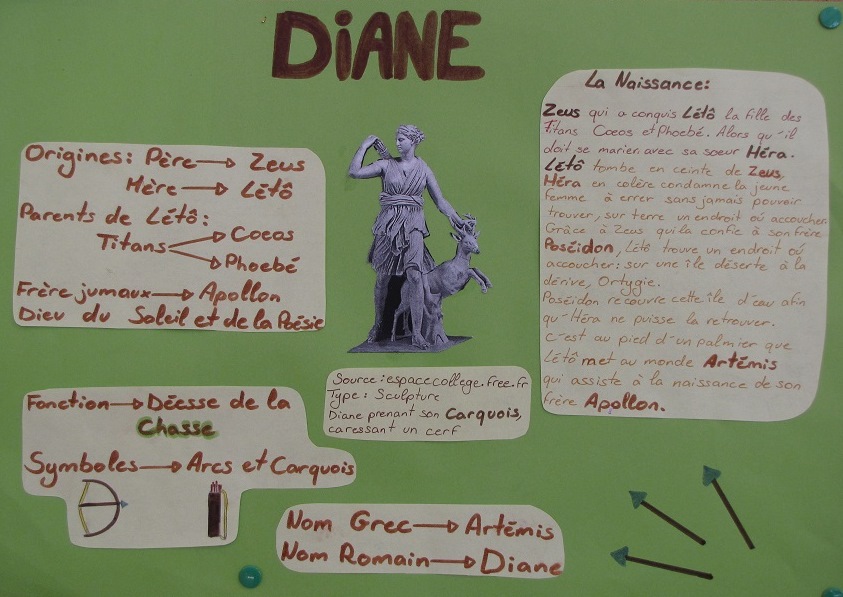 DiANE
Origines: Père → Zeus
Mère → Létô
Parents de Létô:
Titans → Coeos
→ Phoebé
Frère jumaux → Apollon
Dieu du Soleil et de la Poésie
La Naissance:
Zeus qui a conquis Létô la fille des
Titans Coeos et Phoebé. Alors qu'il
doit se marier avec sa soeur Héra.
Létô tombe en ceinte de Zeus,
Héra en colère condamne la jeune
femme à errer sans jamais pouvoir
trouver, sur terre un endroit où accoucher.
Grâce à Zeus qui la confie à son frère
Poséidon, Létô trouve un endroit où
accoucher: sur une île déserte à la
dérive, Ortygie.
Poséidon recouvre cette île d'eau afin
qu'Héra ne puisse la retrouver.
c'est au pied d'un palmier que
Létô met au monde Artémis
qui assiste à la naissance de son
frère Apollon.
Source: espacecollege.free.fr
Type: Sculpture
Diane prenant son Carquois,
caressant un cerf
Fonction → Déesse de la
Chasse
Symboles → Arcs et Carquois
Nom Grec → Artémis
Nom Romain → Diane